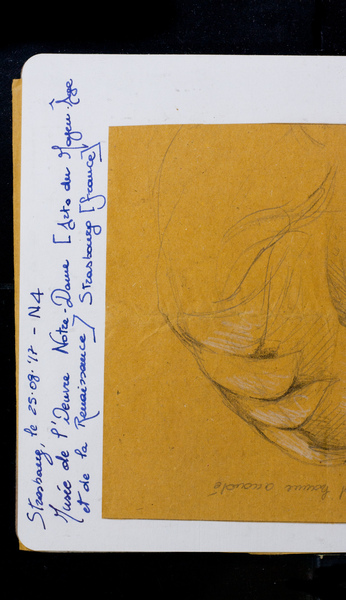 Strasbourg, le 25.09.'17 - N4
Musée de l'Oeuvre Notre-Dame [Arts du Moyen Âge
et de la Renaissance] Strasbourg [France]
homme accoudé